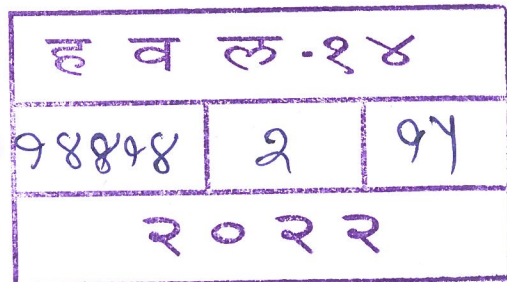 ह व ल - १४
१४४१४ २ १५
२०२२